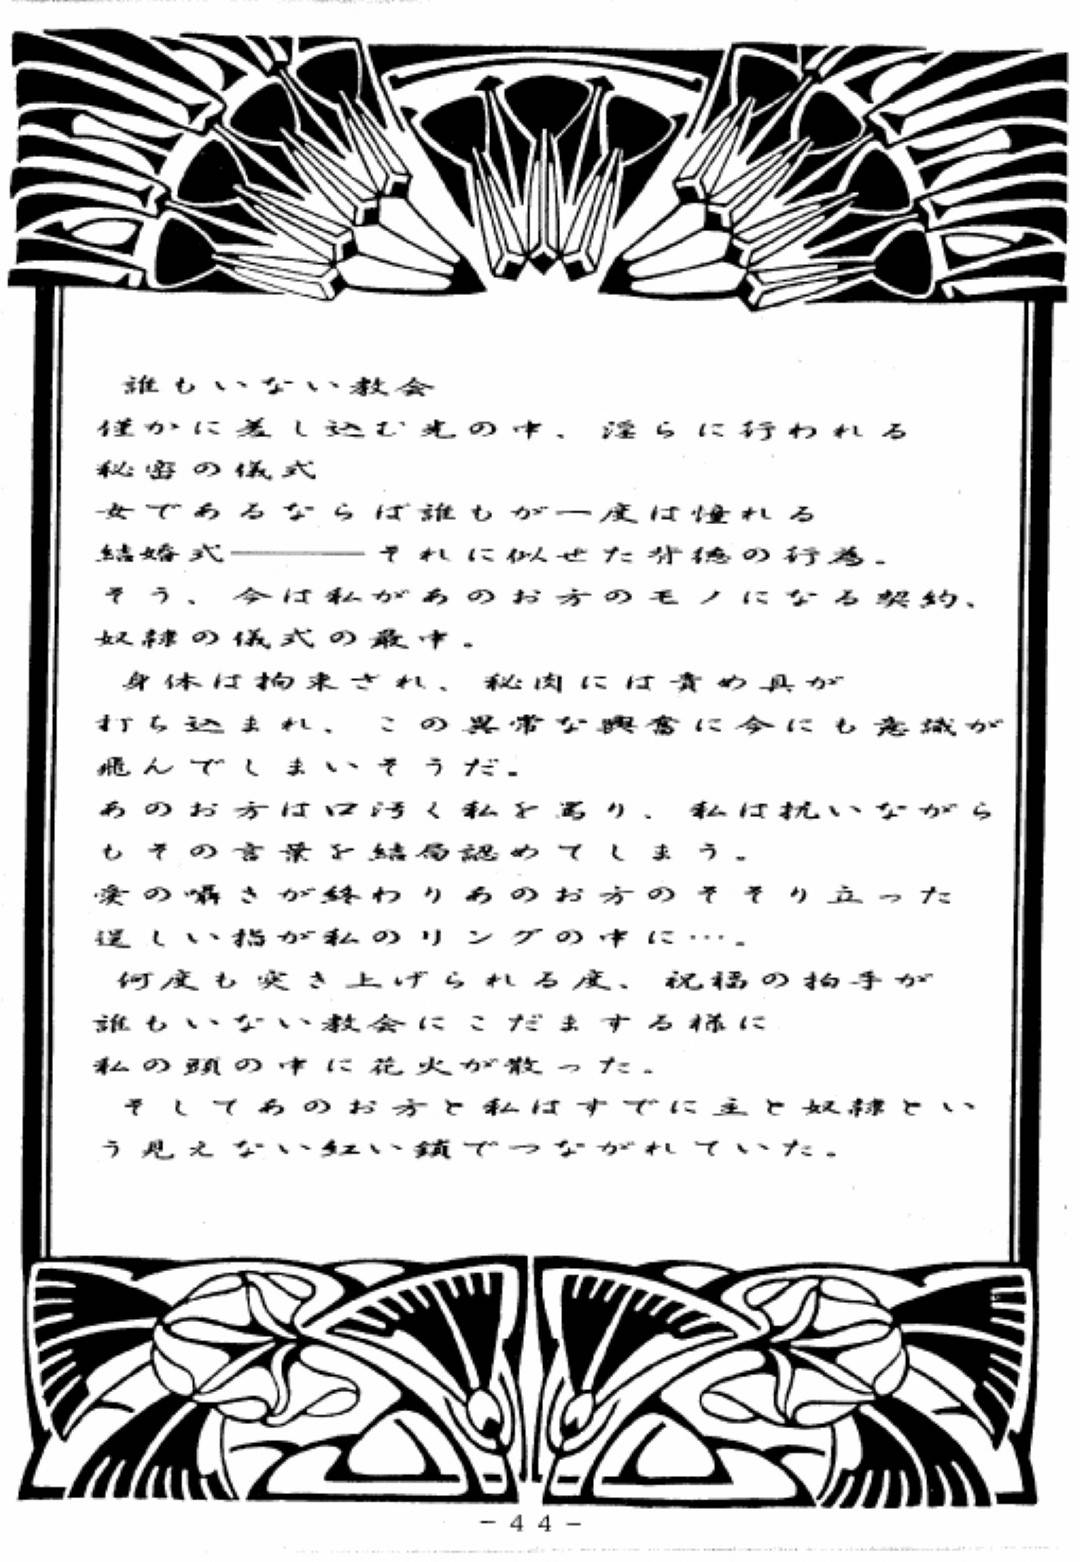 誰もいない教会
僅かに差し込む光の中、淫らに行われる
秘密の儀式
女であるならば誰もが一度は憧れる
結婚式―――それに似せた背徳の行為。
そう、今は私があのお方のモノになる契約、
奴隷の儀式の最中。
身体は拘束され、秘肉には責め具が
打ち込まれ、この異常な興奮に今にも意識が
飛んでしまいそうだ。
あのお方は口汚く私を罵り、私は抗いながら
もその言葉を結局認めてしまう。
愛の囁きが終わりあのお方のそそり立った
逞しい指が私のリングの中に…。
何度も突き上げられる度、祝福の拍手が
誰もいない教会にこだまする様に
私の頭の中に花火が散った。
そしてあのお方と私はすでに主と奴隷とい
う見えない紅い鎖でつながれていた。
-44-